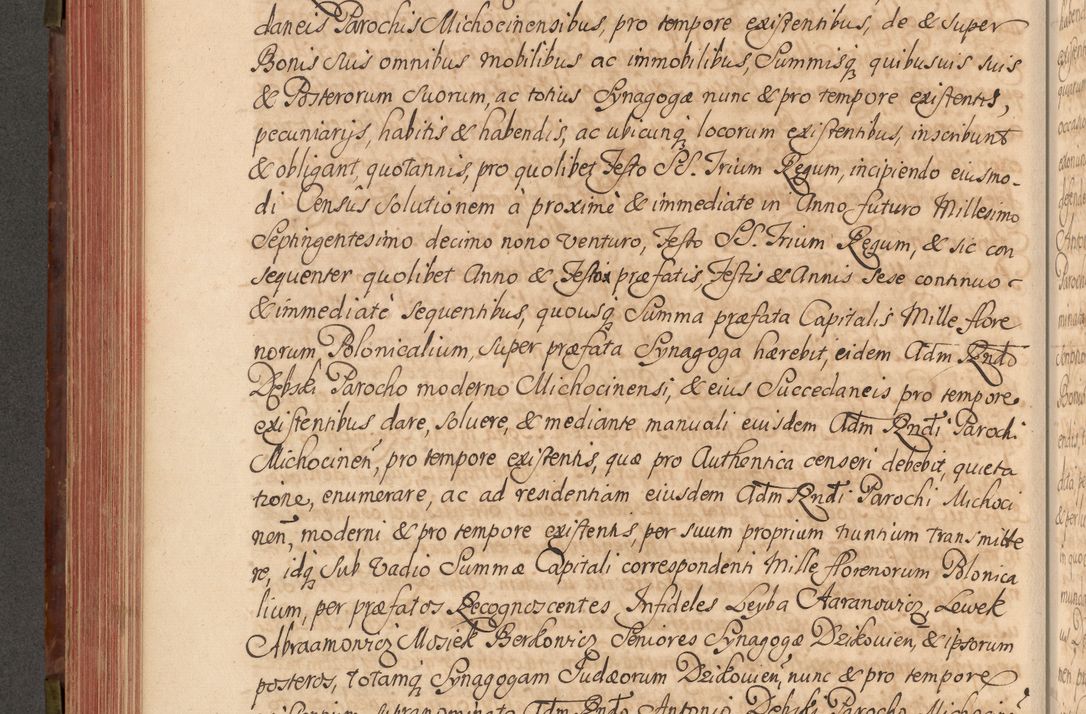 daneis Parochis Michocinensibus, pro tempore existentibus, de & super
Bonis suis omnibus mobilibus ac immobilibus, Summisq quibusuis suis
& Posterorum suorum, ac totius Synagogæ nunc & pro tempore existentis,
pecuniarijs, habitis & habendis, ac ubicunq locorum existentibus, inscribunt
& obligant, quotannis, pro quolibet Festo SS. Trium Regum, incipiendo eiusmo-
di Censûs solutionem à proximè & immediate in Anno futuro Millesimo
Septingentesimo decimo nono venturo, Festo SS. Trium Regum, & sic con
sequenter quolibet Anno & Festo præfatis, Festis & Annis sese continuo
& immediatè sequentibus, quousq Summa præfata Capitalis Mille flore
norum Polonicalium, super præfata Synagoga hærebit, eidem Adm Rndo
Dębski Parocho moderno Michocinensi, & eius Succedaneis pro tempore
existentibus dare, soluere, & mediante manuali euisdem Adm Rndi Parochi
Michocinen, pro tempore existentis, quæ pro Authentica censeri debebit, quieta
tione, enumerare, ac ad residentiam eiusdem Adm Rndi Parochi Michoci
nen, moderni & pro tempore existentis per suum proprium nuntium transmitte
re, idq sub Vadio Summæ Capitali correspondenti Mille florenorum Polonica
lium, per præfatos Recognoscentes Infideles Leyba Aaranowicz, Lewek
Abraamowicz Mosiek Berkowicz Seniores Synagogæ Dzikovien, & ipsorum
posteros, totamq Synagogam Judæorum Dzikovien, nunc & pro tempore
supranominato Adm Rndo Antonio Dębski Parocho Michocinen